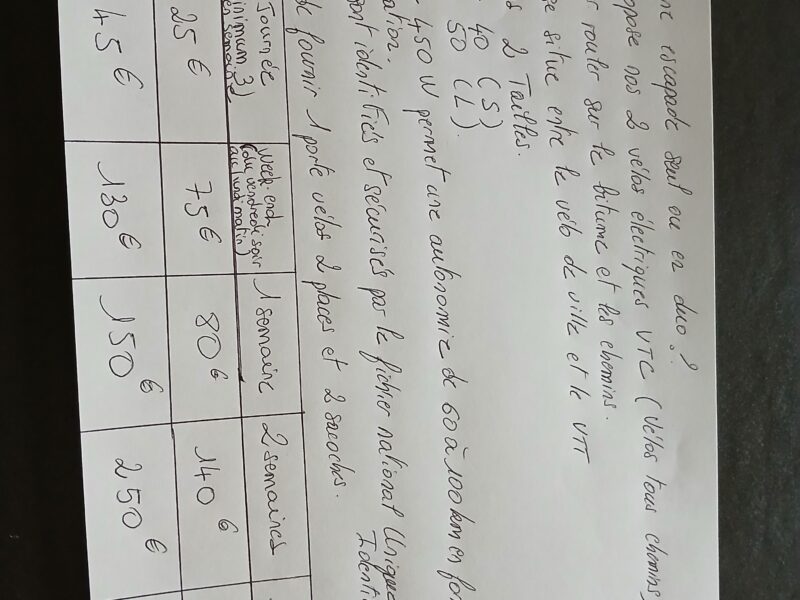 ne escapade seul ou en duo ?
pose nos 2 vélos électriques VTC (Vélos tous chemins,
r rouler sur le bitume et les chemins.
se situe entre le vélo de ville et le VTT
2 Tailles.
40 (S)
50 (L).
450 W permet une autonomie de 60 à 100 km en
ation.
ont identifiés et sécurisés par le fichier national Unique
Identi
de fournir 1 porte vélos 2 places et 2 sacoches.
Journée (minimum 3 en semaine) week-end (du vendredi soir au lundi matin) 1 semaine 2 semaines
25€ 75€ 80€ 140€
45€ 130€ 150€ 250€